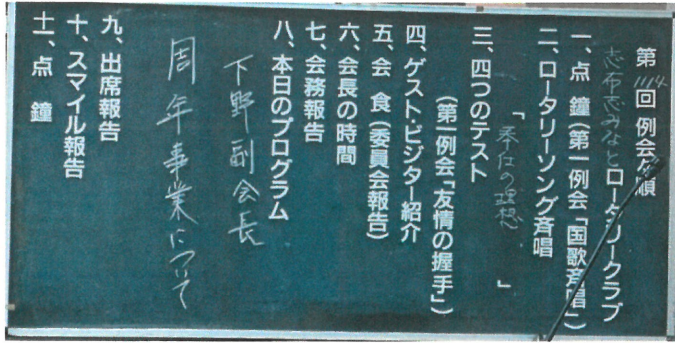 第1114回 例会次順
志布志みなとロータリークラブ
一、点 鐘(第一例会「国歌斉唱」)
二、ロータリーソング斉唱
「奉仕の理想」
三、四つのテスト
(第一例会「友情の握手」)
四、ゲスト・ビジター紹介
五、会 食(委員会報告)
六、会長の時間
七、会務報告
八、本日のプログラム
下野副会長
周年事業について
九、出席報告
十、スマイル報告
十一、点 鐘